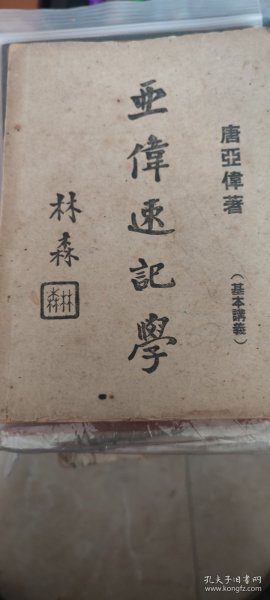 唐亞偉著
（基本講義）
亜偉速記學
林森
林森
孔夫子旧书网
www.kongfz.com